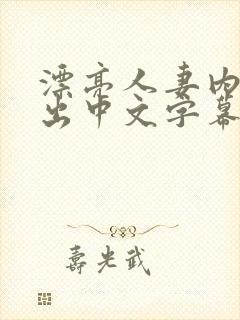 漂亮人妻内
出中文字幕
寿光武